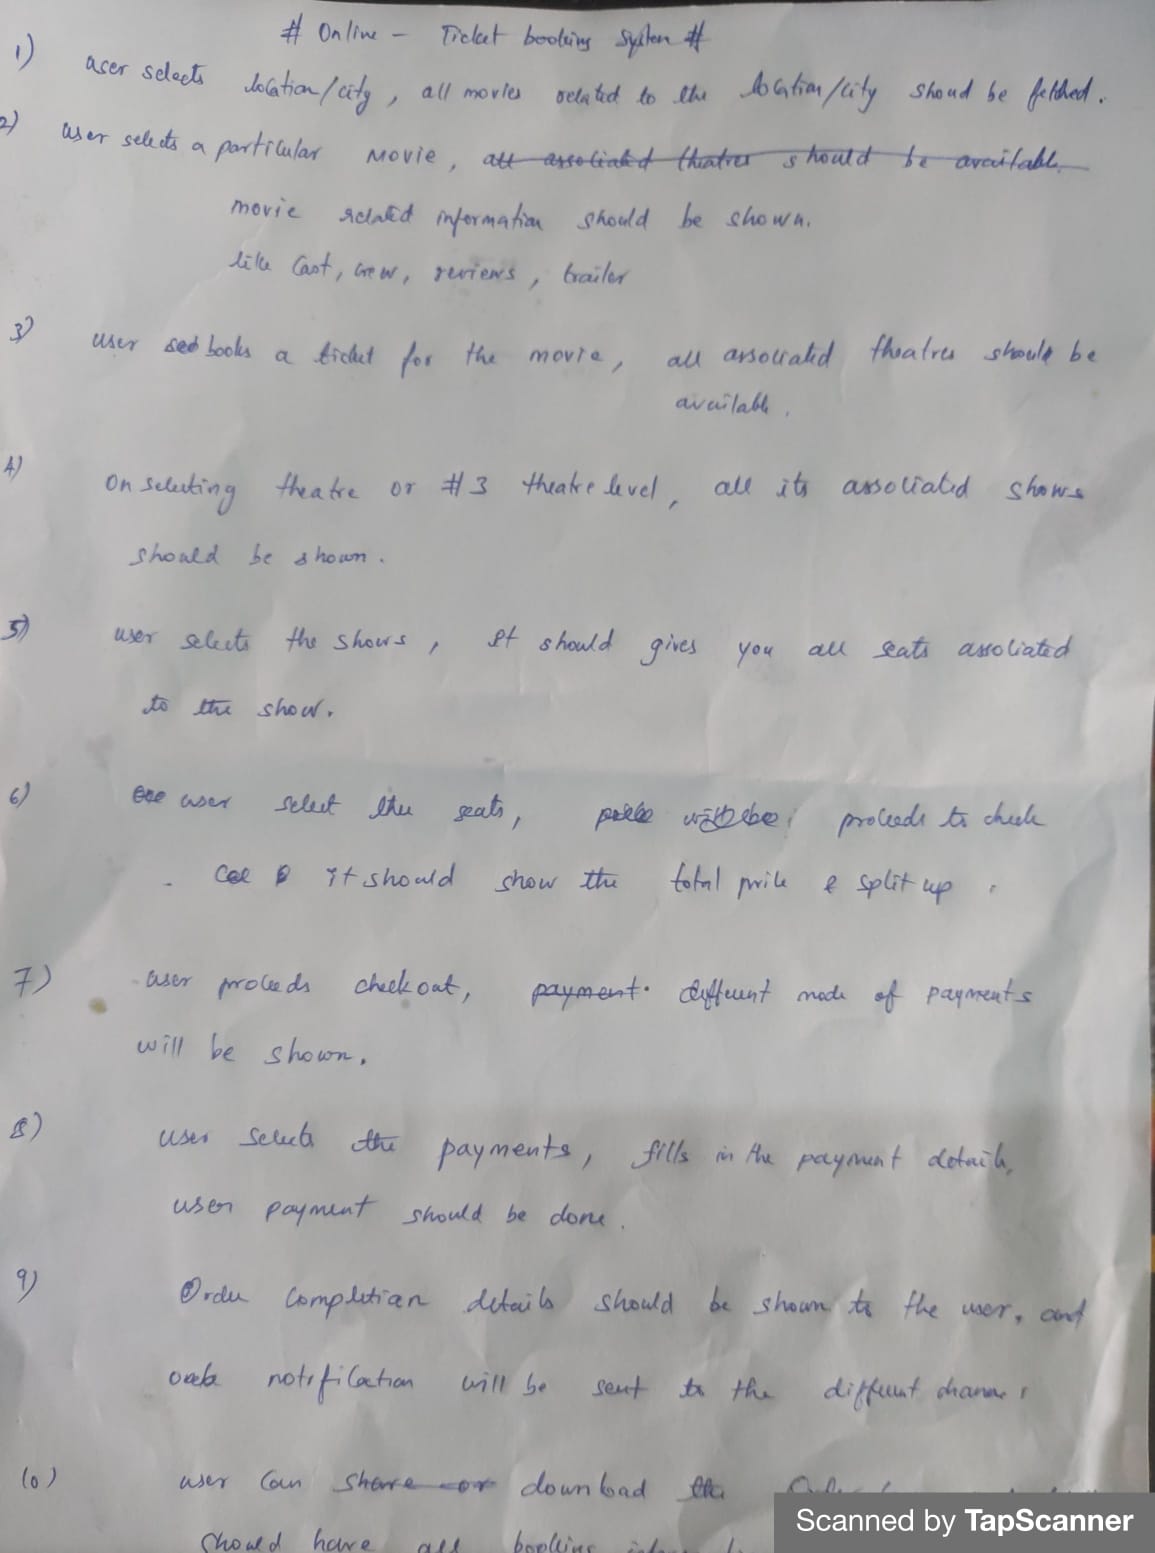 # Online - Ticket booking System #
1) user selects location/city, all movies related to the location/city shoud be fetched.
2) user selects a particular movie, all associated theatres should be available
movie related information should be shown.
like Cast, crew, reviews, trailer
3) user books a ticket for the movie, all associated theatres should be
available.
4) On selecting theatre or #3 theatre level, all its associated shows
should be shown.
5) user selects the shows, It should gives you all seats associated
to the show.
6) user select the seats, proceeds to check
it should show the total price & split up.
7) user proceeds checkout, payment. different mode of payments
will be shown.
8) user selects the payments, fills in the payment details,
user payment should be done.
9) Order Completion details should be shown to the user, and
notification will be sent to the different
10) user can share or download the
should have all booking
Scanned by TapScanner